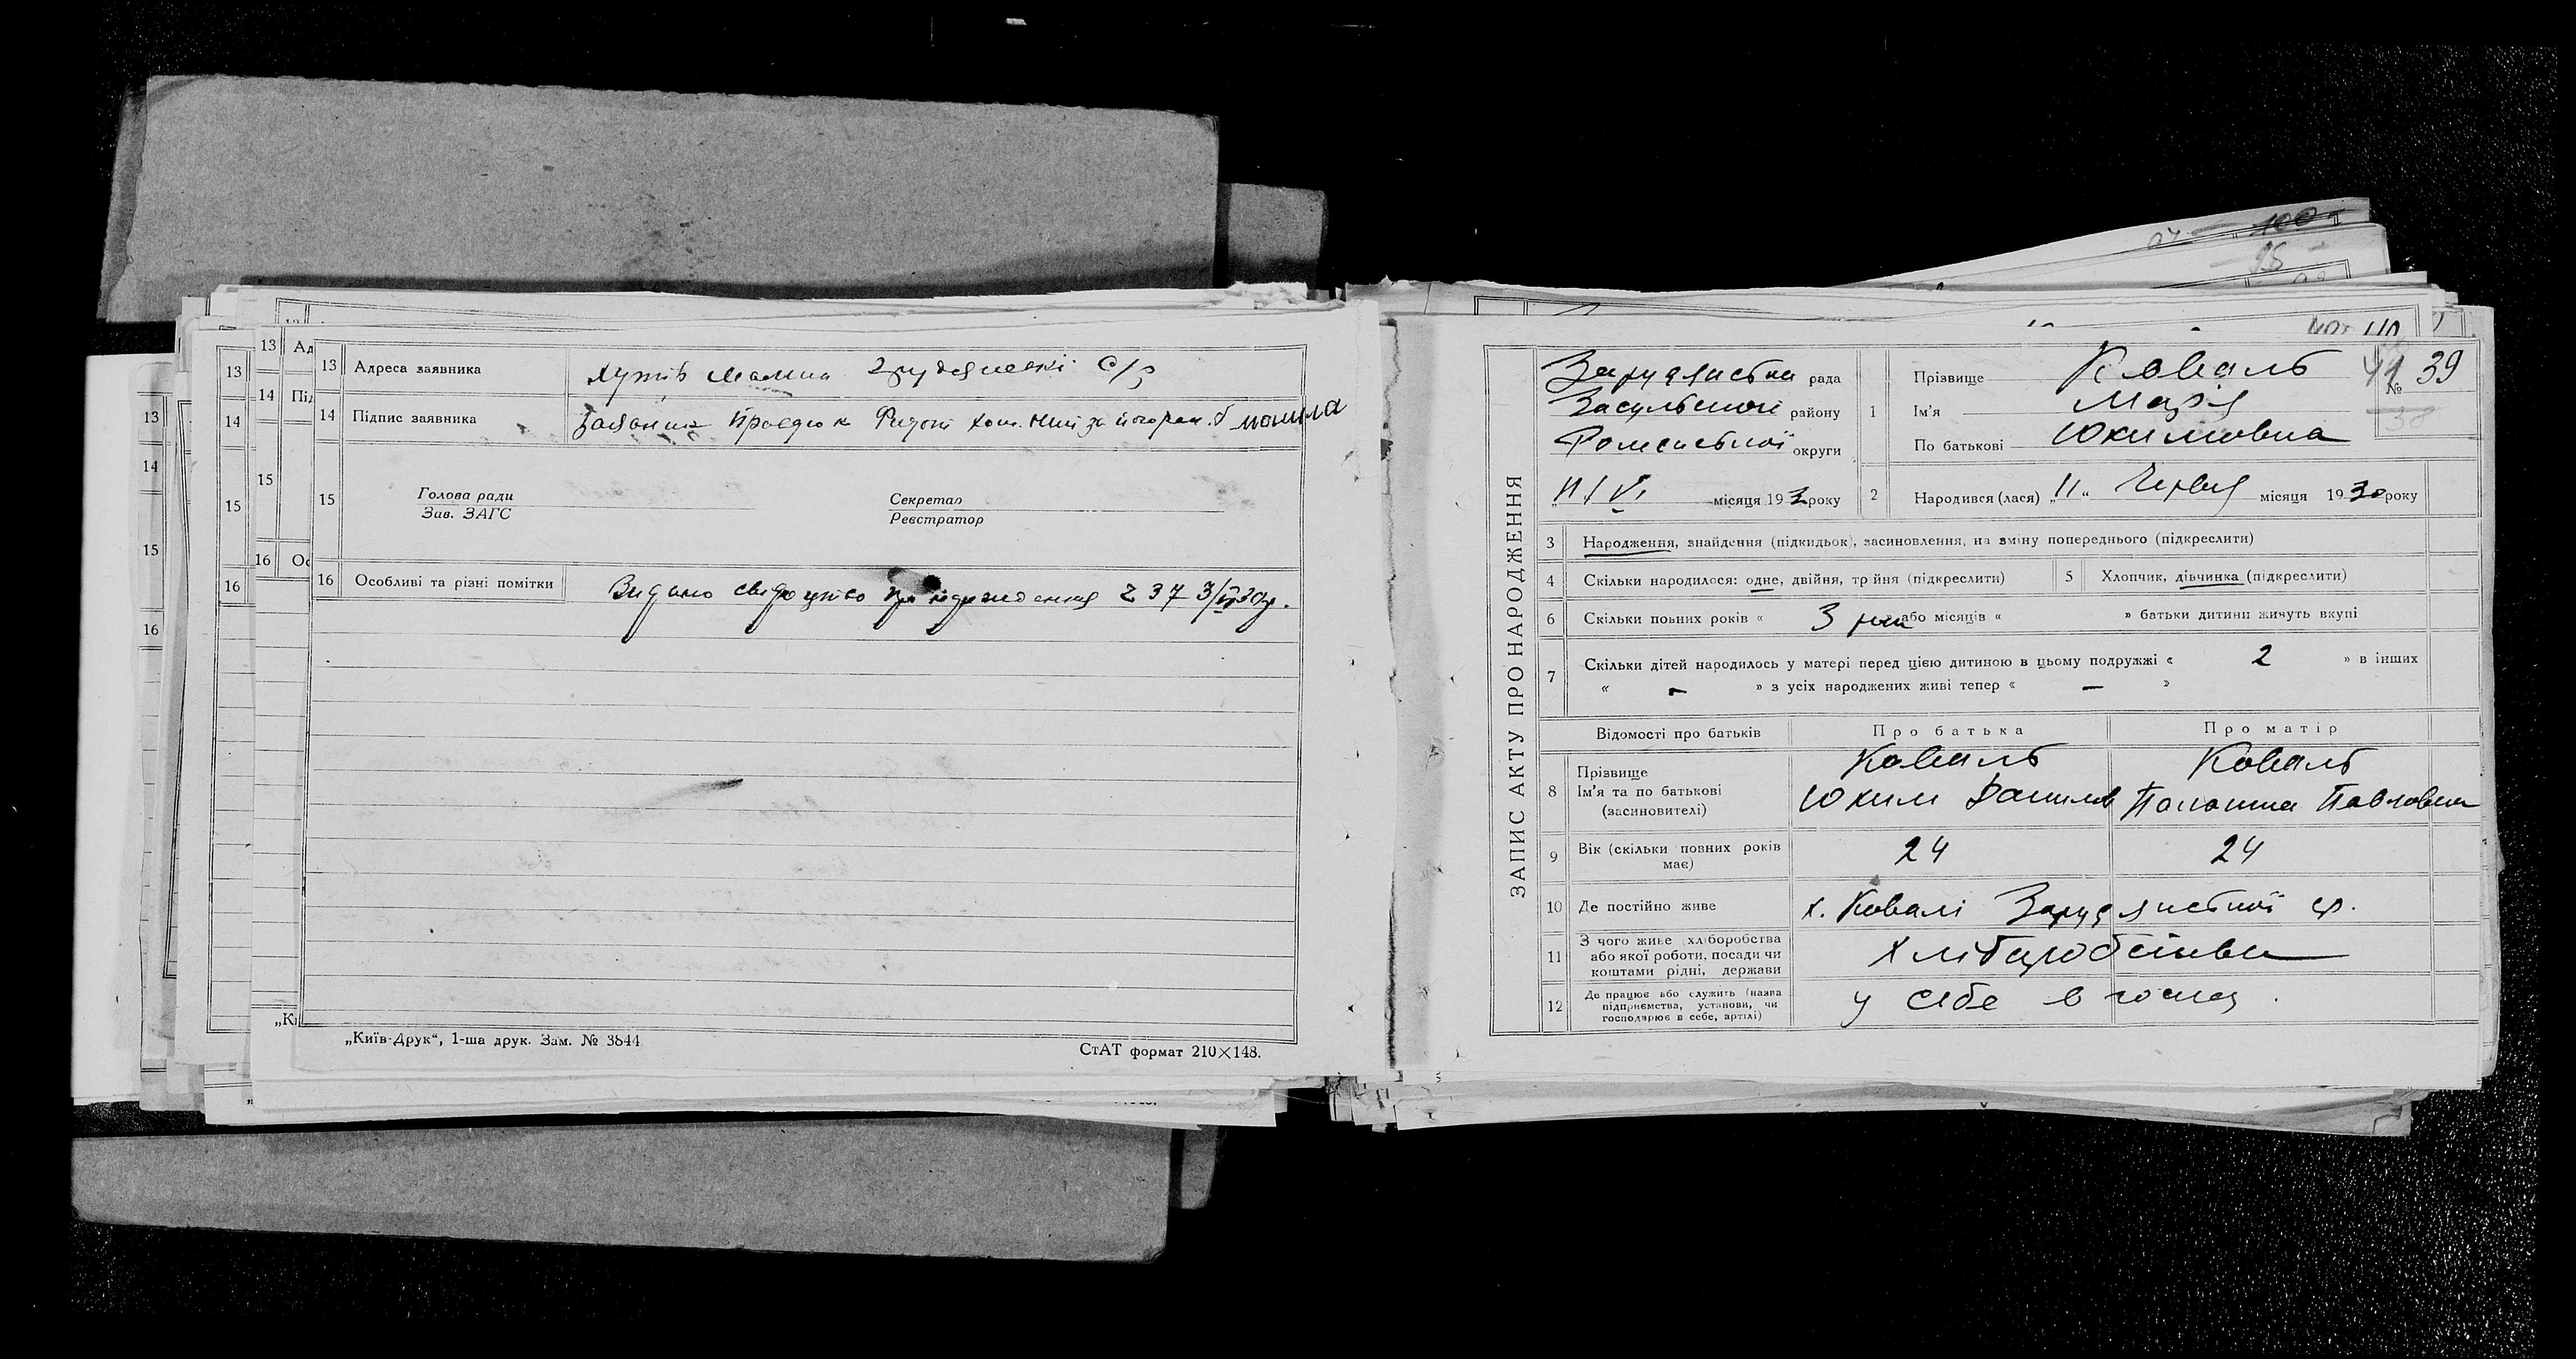 13 Адреса заявника Хутів
14 Підпис заявника Заявник
15 Голова ради
Зав. ЗАГС
Секретар
Реєстратор
16 Особливі та різні помітки Видано свідоцтво про народження 37 3/VI 30 р.
„Київ-Друк“, 1-ша друк. Зам. № 3844
СтАТ формат 210×148.
ЗАПИС АКТУ ПРО НАРОДЖЕННЯ
рада
Засульської району
Роменської округи
11/VI місяця 193 року
1 Прізвище Коваль
№ 39
Ім'я Марія
По батькові Юкимовна
2 Народився (лася) „11“ Червня місяця 1930 року
3 Народження, знайдення (підкидьок), засиновлення, на зміну попереднього (підкреслити)
4 Скільки народилося: одне, двійня, трійня (підкреслити)
5 Хлопчик, дівчинка (підкреслити)
6 Скільки повних років « 3 роки або місяців « » батьки дитини живуть вкупі
7 Скільки дітей народилось у матері перед цією дитиною в цьому подружжі « 2 » в інших
« - » з усіх народжених живі тепер « - »
Відомості про батьків Про батька Про матір
8 Прізвище Коваль Коваль
Ім'я та по батькові Юхим Данилов Павловна
(засиновителі)
9 Вік (скільки повних років має) 24 24
10 Де постійно живе х. Ковалі
11 З чого живе (хліборобства
або якої роботи, посади чи
коштами рідні, держави
Хліборобства
12 Де працює або служить (назва
підприємства, установи, чи
господарює в себе, артілі)
у себе в госпд.